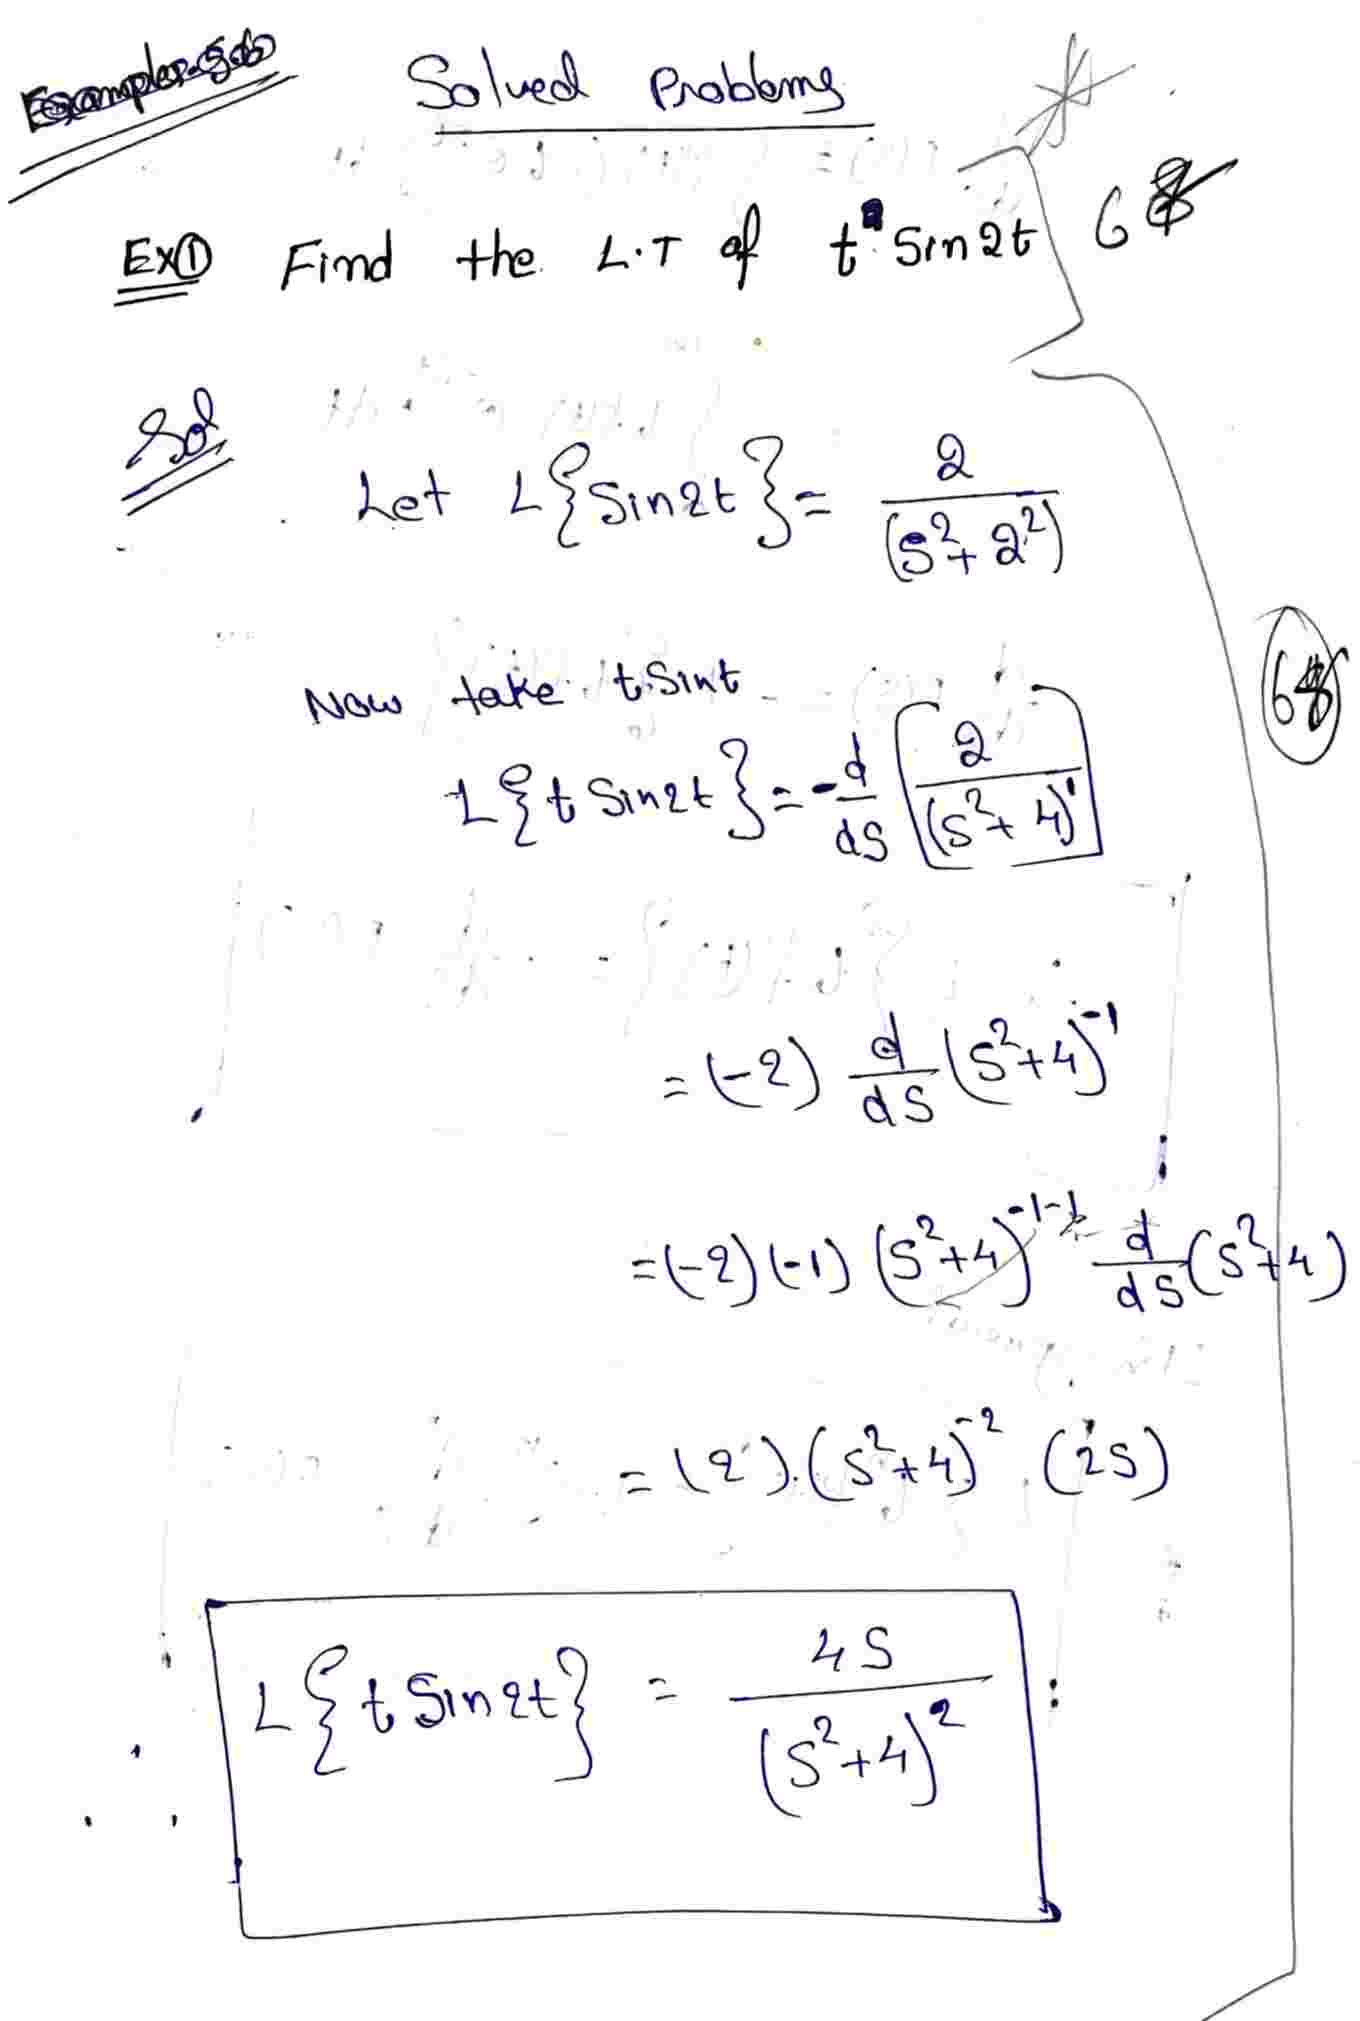 Solved Problems
Ex① Find the L.T of t Sin2t
Sol
Let L{Sin2t} = 2/(S²+2²)
Now take tSint
L{t Sin2t} = -d/dS [2/(S²+4)¹]
= (-2) d/dS (S²+4)⁻¹
= (-2) (-1) (S²+4)⁻¹⁻¹ d/dS (S²+4)
= (2).(S²+4)⁻² (2S)
∴ L{t Sin2t} = 4S/(S²+4)²